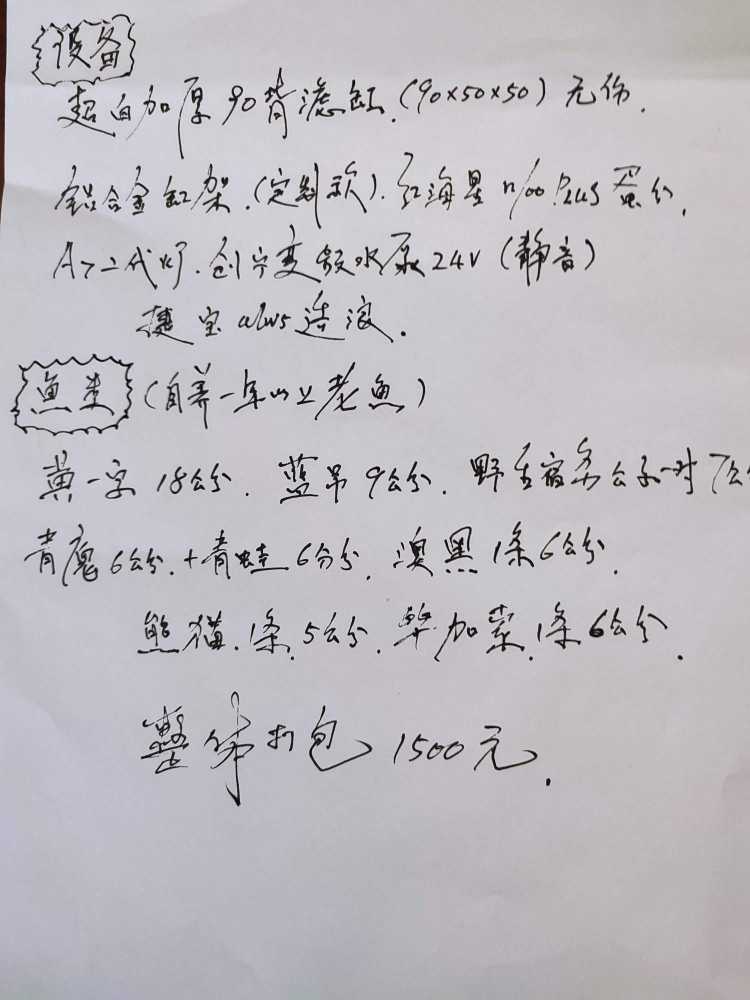 设备
超白加厚90背滤缸.(90×50×50)无伤.
铝合金缸架.(定制款).红海星n100.Plus蛋分.
A7二代灯.创宁变频水泵24V(静音)
捷宝alws造浪.
鱼类(自养一年以上老鱼)
黄一字18公分.蓝吊9公分.野生宿务公子一对7公
青魔6公分.+青蛙6公分.澳黑1条6公分.
熊猫.1条.5公分.毕加索.1条6公分.
整体打包1500元.